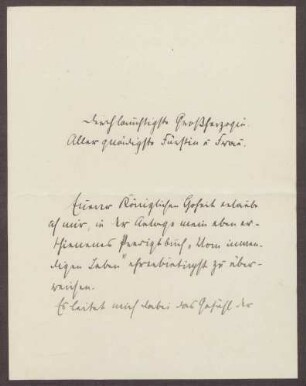 Durchlauchtigste Großherzogin.
Allergnädigste Fürstin u Frau.
Eurer Königlichen Hoheit erlaube
ich mir, in der Anlage mein eben er-
schienenes Predigtbuch „Vom inwen-
digen Leben" ehrerbietigst zu über-
reichen.
Es leitet mich dabei das Gefühl der